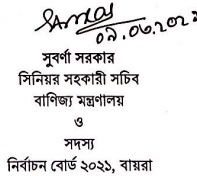 ০৯.০৬.২০২১
সুবর্ণা সরকার
সিনিয়র সহকারী সচিব
বাণিজ্য মন্ত্রণালয়
ও
সদস্য
নির্বাচন বোর্ড ২০২১, বায়রা